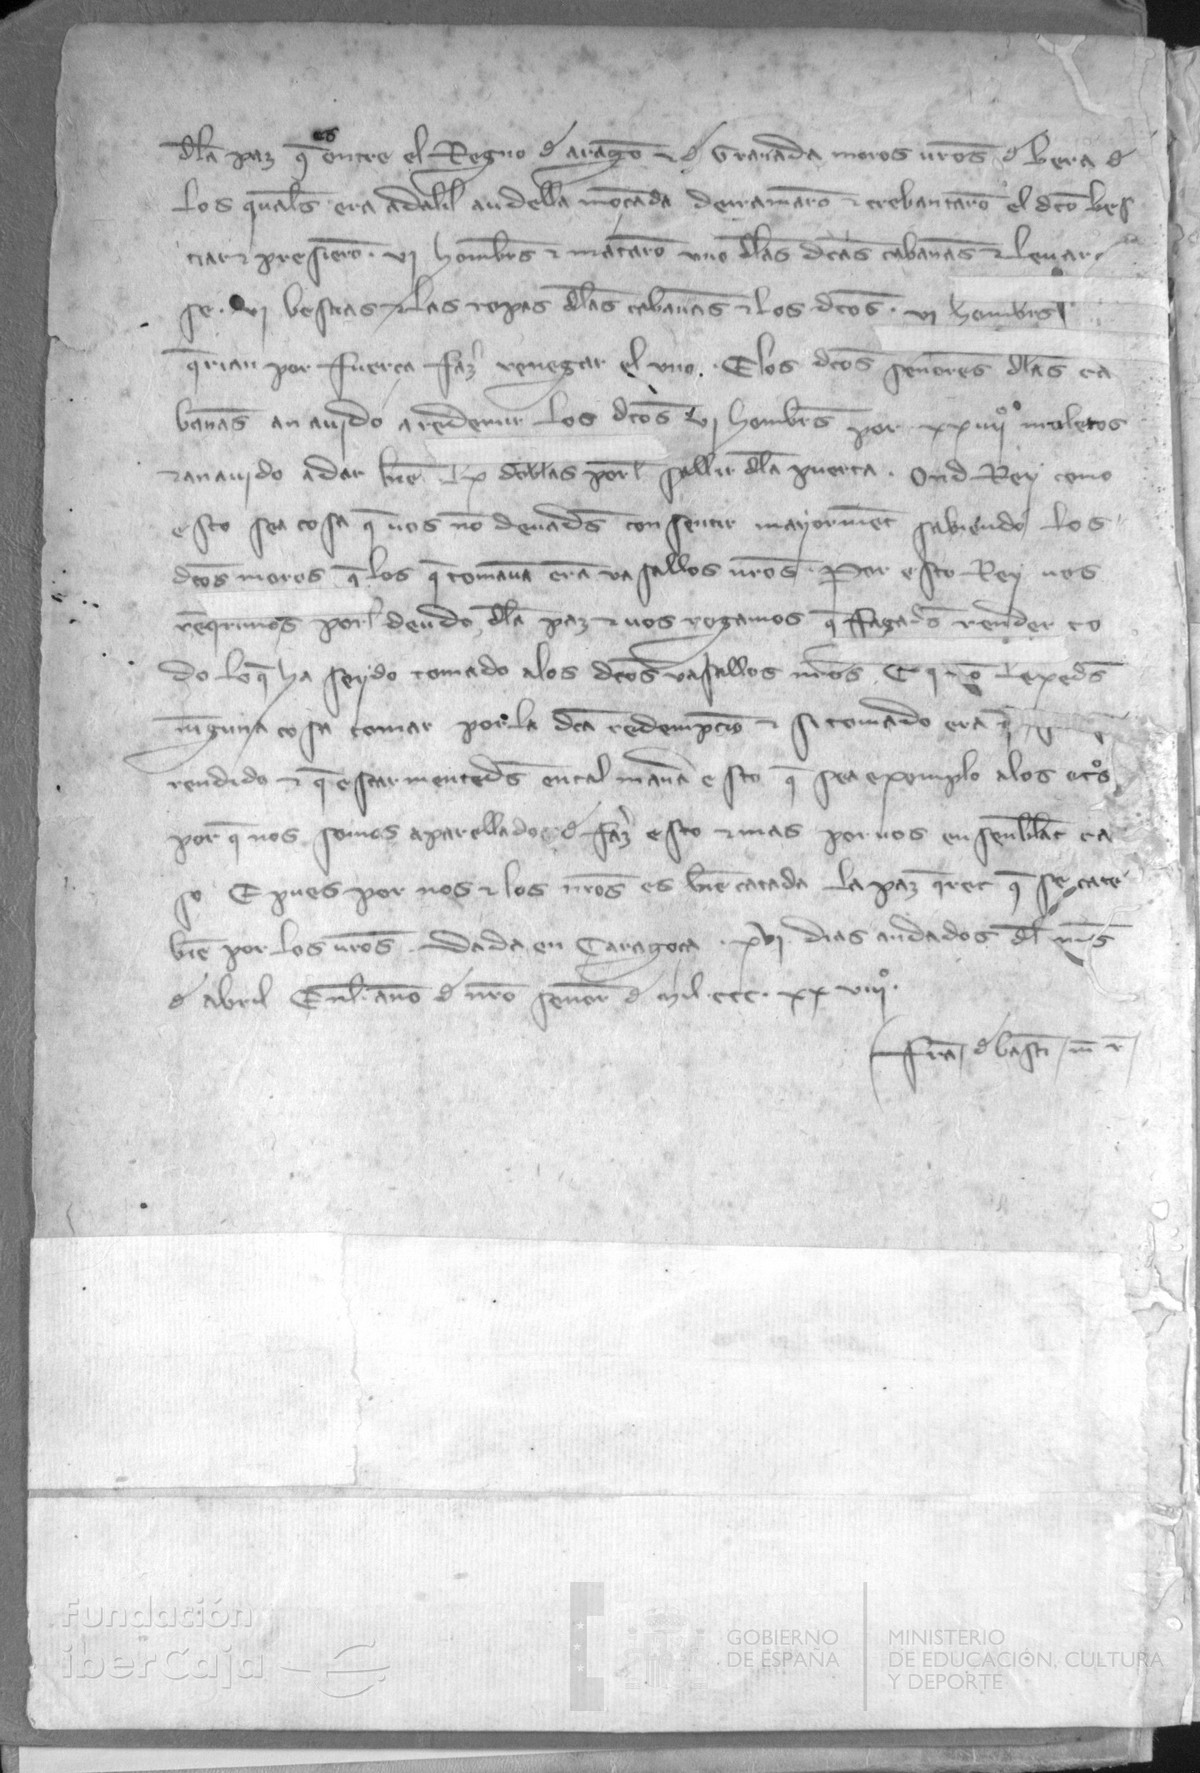 dla paz q̄ es entre el Regno d aragō ⁊ d Granada moros ur̄os d bera d
los quals era adalil audella mocada deuramarō ⁊ crebantarō el dc̄o bes
tiar ⁊ presierō · vj hombrs ⁊ matarō uno dlas dc̄as cabanas ⁊ leuar
se · vj bestias ⁊ las ropas dlas cabanas ⁊ los dc̄os · vj hombrs
q̄rian por fuerça faz̄ renegar el uno · E los dc̄os senores dlas ca
banas an auido a redemir los dc̄os vj hombrs por xxiiijº moletos
⁊ an auido a dar bn̄e doblas porl sallir dla puerta · Ond Rey como
esto sea cosa q̄ uos nō deuads consentir mayormēt sabiendo los
dc̄os moros q̄ los q̄ tomaua erā vasallos nr̄os · Por esto Rey uos
req̄rimos porl deudo dla paz ⁊ uos rogamos q̄ fagads render to
do loq̄ ha seydo tomado alos dc̄os vasallos nr̄os E q̄ nō lexeds
ninguna cosa tomar por la dc̄a redempciō ⁊ si tomado era
rendido ⁊ q̄ escarmenteds en tal manā esto q̄ sea exemplo alos otr̄os
por q̄ nos semos aparellados d faz̄ esto ⁊ mas por uos en senblāt ca
so E pues por nos ⁊ los nr̄os es bn̄e catada la paz q̄ret q̄ se cate
bn̄e por los ur̄os · Dada en Caragoça · xvj · dias andados dl mes
d abril Enl · anō d nr̄o senor d mil · ccc · xx viijº ·
Frā d bastī m̄ r̄
Fundación
iberCaja
GOBIERNO
DE ESPAÑA
MINISTERIO
DE EDUCACIÓN, CULTURA
Y DEPORTE